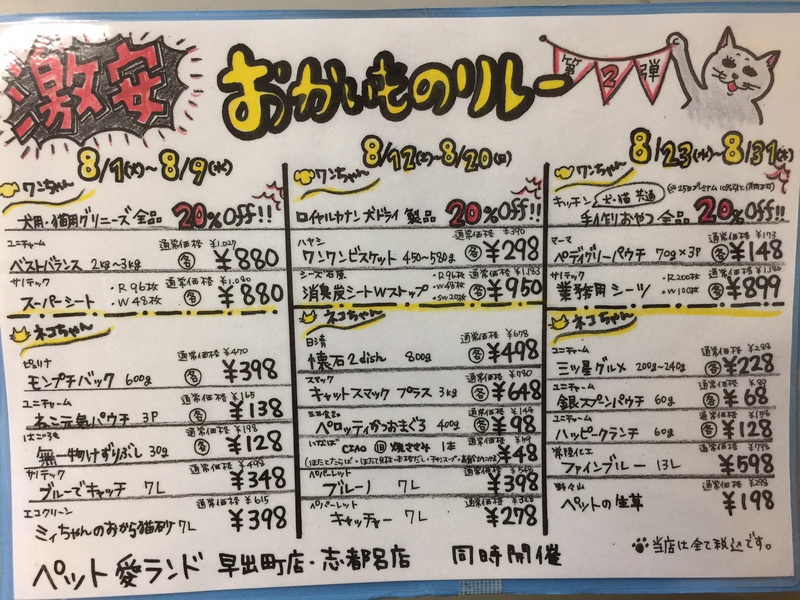 激安
おかいものリレー
第2弾
8/1(火)~8/9(水)
ワンちゃん
犬用・猫用グリニーズ全品 20%Off!!
ユニチャーム 通常価格 ¥1,027
ベストバランス 2kg~3kg 各 ¥880
サノテック 通常価格 ¥1,080
スーパーシート ・R96枚 ・W48枚 各 ¥880
ネコちゃん
ピュリナ 通常価格 ¥470
モンプチバッグ 600g 各 ¥398
ユニチャーム 通常価格 ¥165
ねこ元気パウチ 3P 各 ¥138
はごろも 通常価格 ¥198
無一物けずりぶし 30g 各 ¥128
サノテック 通常価格 ¥498
ブルーでキャッチ 7L ¥348
エコクリーン 通常価格 ¥615
ミィちゃんのおから猫砂 7L ¥398
8/12(土)~8/20(日)
ワンちゃん
ロイヤルカナン 犬ドライ 製品 20%Off!!
ハヤシ 通常価格 ¥390
ワンワンビスケット 450~580g 各 ¥298
シーズ石炭 通常価格 ¥1,183
消臭炭シートWストップ ・R96枚 ・W48枚 ・SW20枚 各 ¥950
ネコちゃん
日清 通常価格 ¥678
懐石2dish 800g 各 ¥498
スマック 通常価格 ¥780
キャットスマック プラス 3kg 各 ¥648
三井食品 通常価格 ¥148
ペロッティかつおまぐろ 400g 各 ¥98
いなば CIAO 焼ささみ 1本 通常価格 ¥69 ¥48
ペパーレット 通常価格 ¥548
ブルーノ 7L ¥398
ペパーレット 通常価格
キャッチャー 7L ¥278
8/23(水)~8/31(木)
ワンちゃん
キッチン 犬・猫 共通
手作りおやつ 全品 20%Off!!
マース 通常価格 ¥173
ペディグリーパウチ 70g×3P 各 ¥148
サノテック ・R200枚 ・W100枚 通常価格 ¥1,180
業務用シーツ 各 ¥899
ネコちゃん
ユニチャーム 通常価格 ¥288
三ツ星グルメ 200g~240g 各 ¥228
ユニチャーム 通常価格 ¥88
銀スプーンパウチ 60g 各 ¥68
ユニチャーム 通常価格 ¥158
ハッピークランチ 60g 各 ¥128
常陸化工 通常価格 ¥798
ファインブルー 13L ¥598
野々山 通常価格 ¥298
ペットの生草 ¥198
当店は全て税込です。
ペット愛ランド 早出町店・志都呂店 同時開催